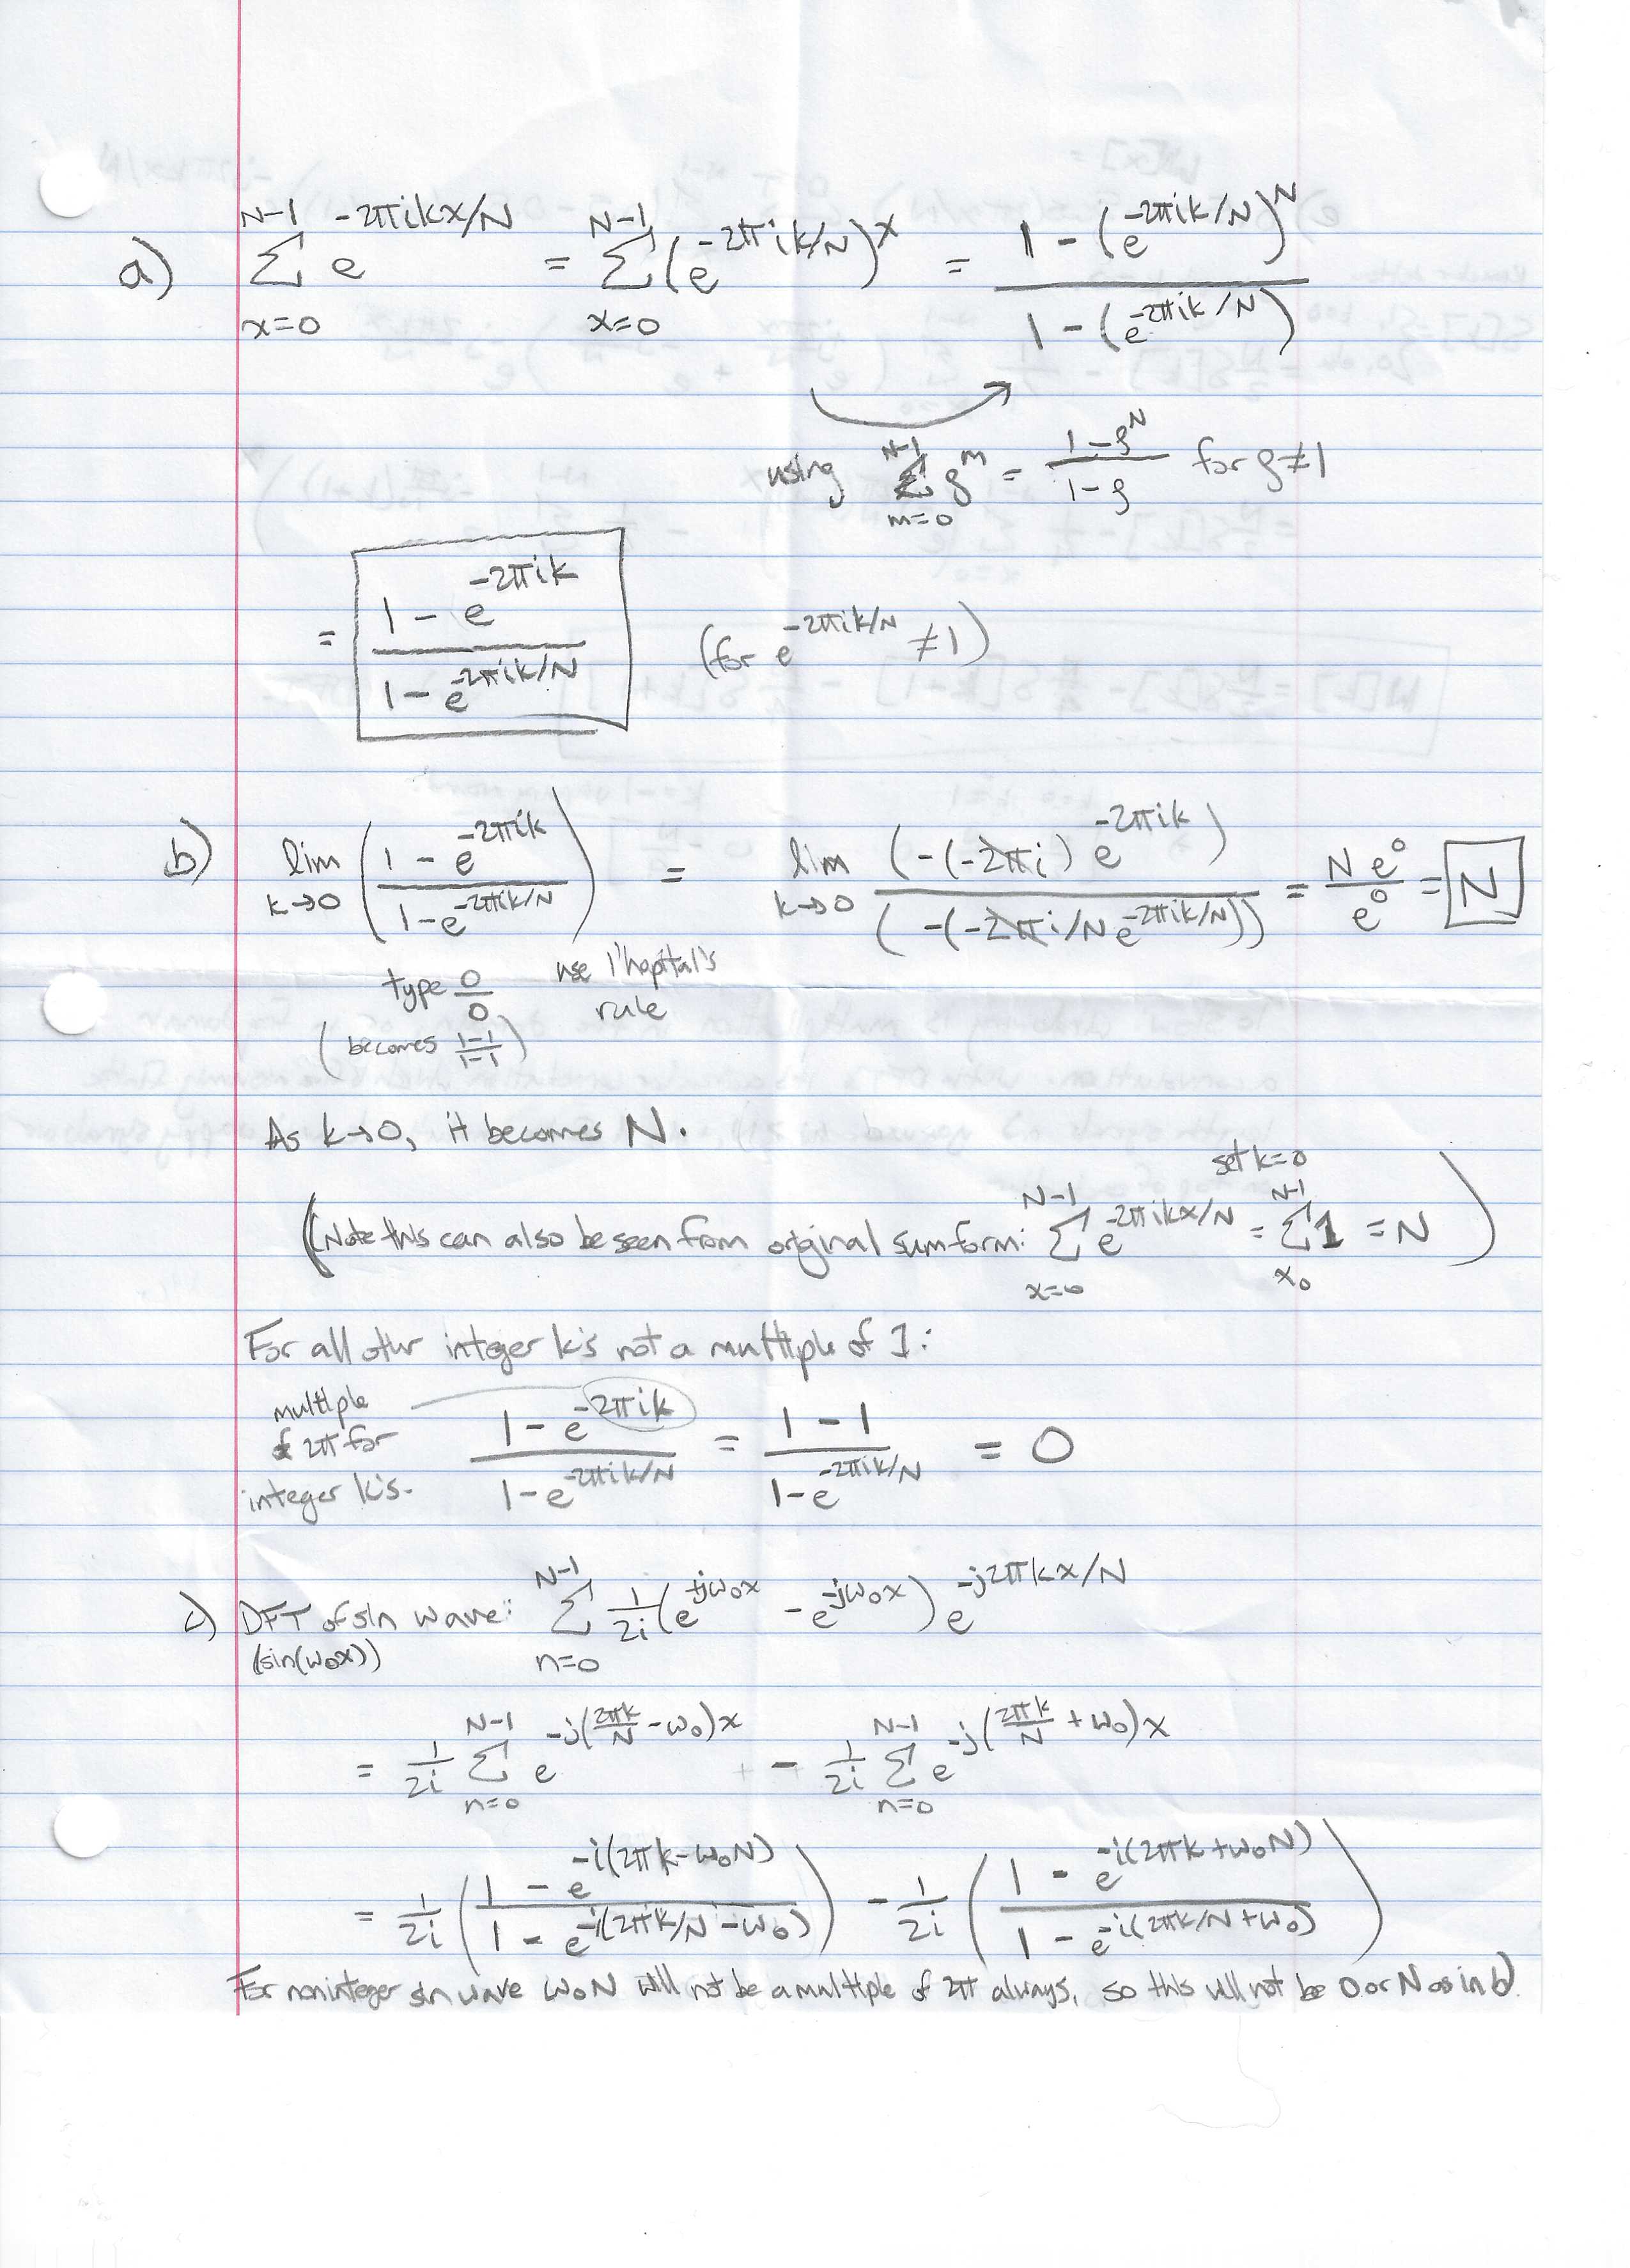 a) \sum_{x=0}^{N-1} e^{-2πikx/N} = \sum_{x=0}^{N-1} (e^{-2πik/N})^x = \frac{1-(e^{-2πik/N})^N}{1-(e^{-2πik/N})}
using \sum_{m=0}^{N-1} ρ^m = \frac{1-ρ^N}{1-ρ} for ρ≠1
= \frac{1-e^{-2πik}}{1-e^{-2πik/N}} (for e^{-2πik/N} ≠1)
b) lim_{k→0} (\frac{1-e^{-2πik}}{1-e^{-2πik/N}}) = lim_{k→0} \frac{(-(-2πi) e^{-2πik})}{(-(-2πi/N e^{-2πik/N}))} = \frac{N e^0}{e^0} = N
type \frac{0}{0} use l'hopital's
rule
(becomes \frac{1-1}{1-1})
As k→0, it becomes N.
set k=0
(Note this can also be seen from original sum form: \sum_{x=0}^{N-1} e^{-2πikx/N} = \sum_{x_0}^{N-1} 1 = N)
For all othr integer k's not a multiple of 1:
multiple
of 2π for
integer k's.
\frac{1-e^{-2πik}}{1-e^{-2πik/N}} = \frac{1-1}{1-e^{-2πik/N}} = 0
c) DFT of sin wave: \sum_{n=0}^{N-1} \frac{1}{2i}(e^{+jω_0x} - e^{-jω_0x}) e^{-j2πkx/N}
(sin(ω_0x))
= \frac{1}{2i} \sum_{n=0}^{N-1} e^{-j(\frac{2πk}{N}-ω_0)x} - \frac{1}{2i} \sum_{n=0}^{N-1} e^{-j(\frac{2πk}{N}+ω_0)x}
= \frac{1}{2i} (\frac{1-e^{-i(2πk-ω_0N)}}{1-e^{-i(2πk/N-ω_0)}}) - \frac{1}{2i} (\frac{1-e^{-i(2πk+ω_0N)}}{1-e^{-i(2πk/N+ω_0)}})
For noninteger sin wave ω_0N will not be a multiple of 2π always, so this will not be 0 or N as in b)